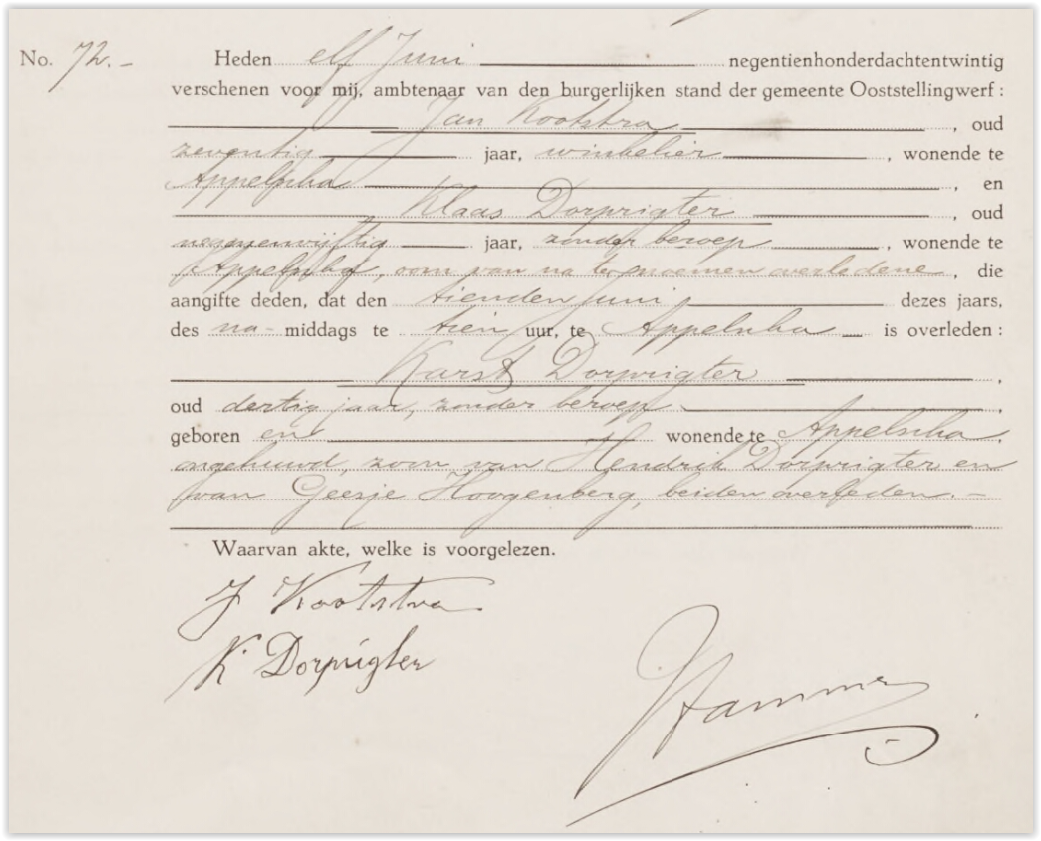 No. 72.- Heden elf Juni negentienhonderdachtentwintig
verschenen voor mij, ambtenaar van den burgerlijken stand der gemeente Ooststellingwerf:
Jan Kootstra, oud
zeventig jaar, winkelier, wonende te
Appelscha, en
Klaas Dorprigter, oud
negenenvijftig jaar, zonder beroep, wonende te
Appelscha, oom van na te noemen overledene, die
aangifte deden, dat den tienden Juni dezes jaars,
des na-middags te tien uur, te Appelscha is overleden:
Karst Dorprigter,
oud dertig jaar, zonder beroep,
geboren en wonende te Appelscha,
ongehuwd, zoon van Hendrik Dorprigter en
van Geesje Hoogenberg, beiden overleden.-
Waarvan akte, welke is voorgelezen.
J Kootstra
K Dorprigter